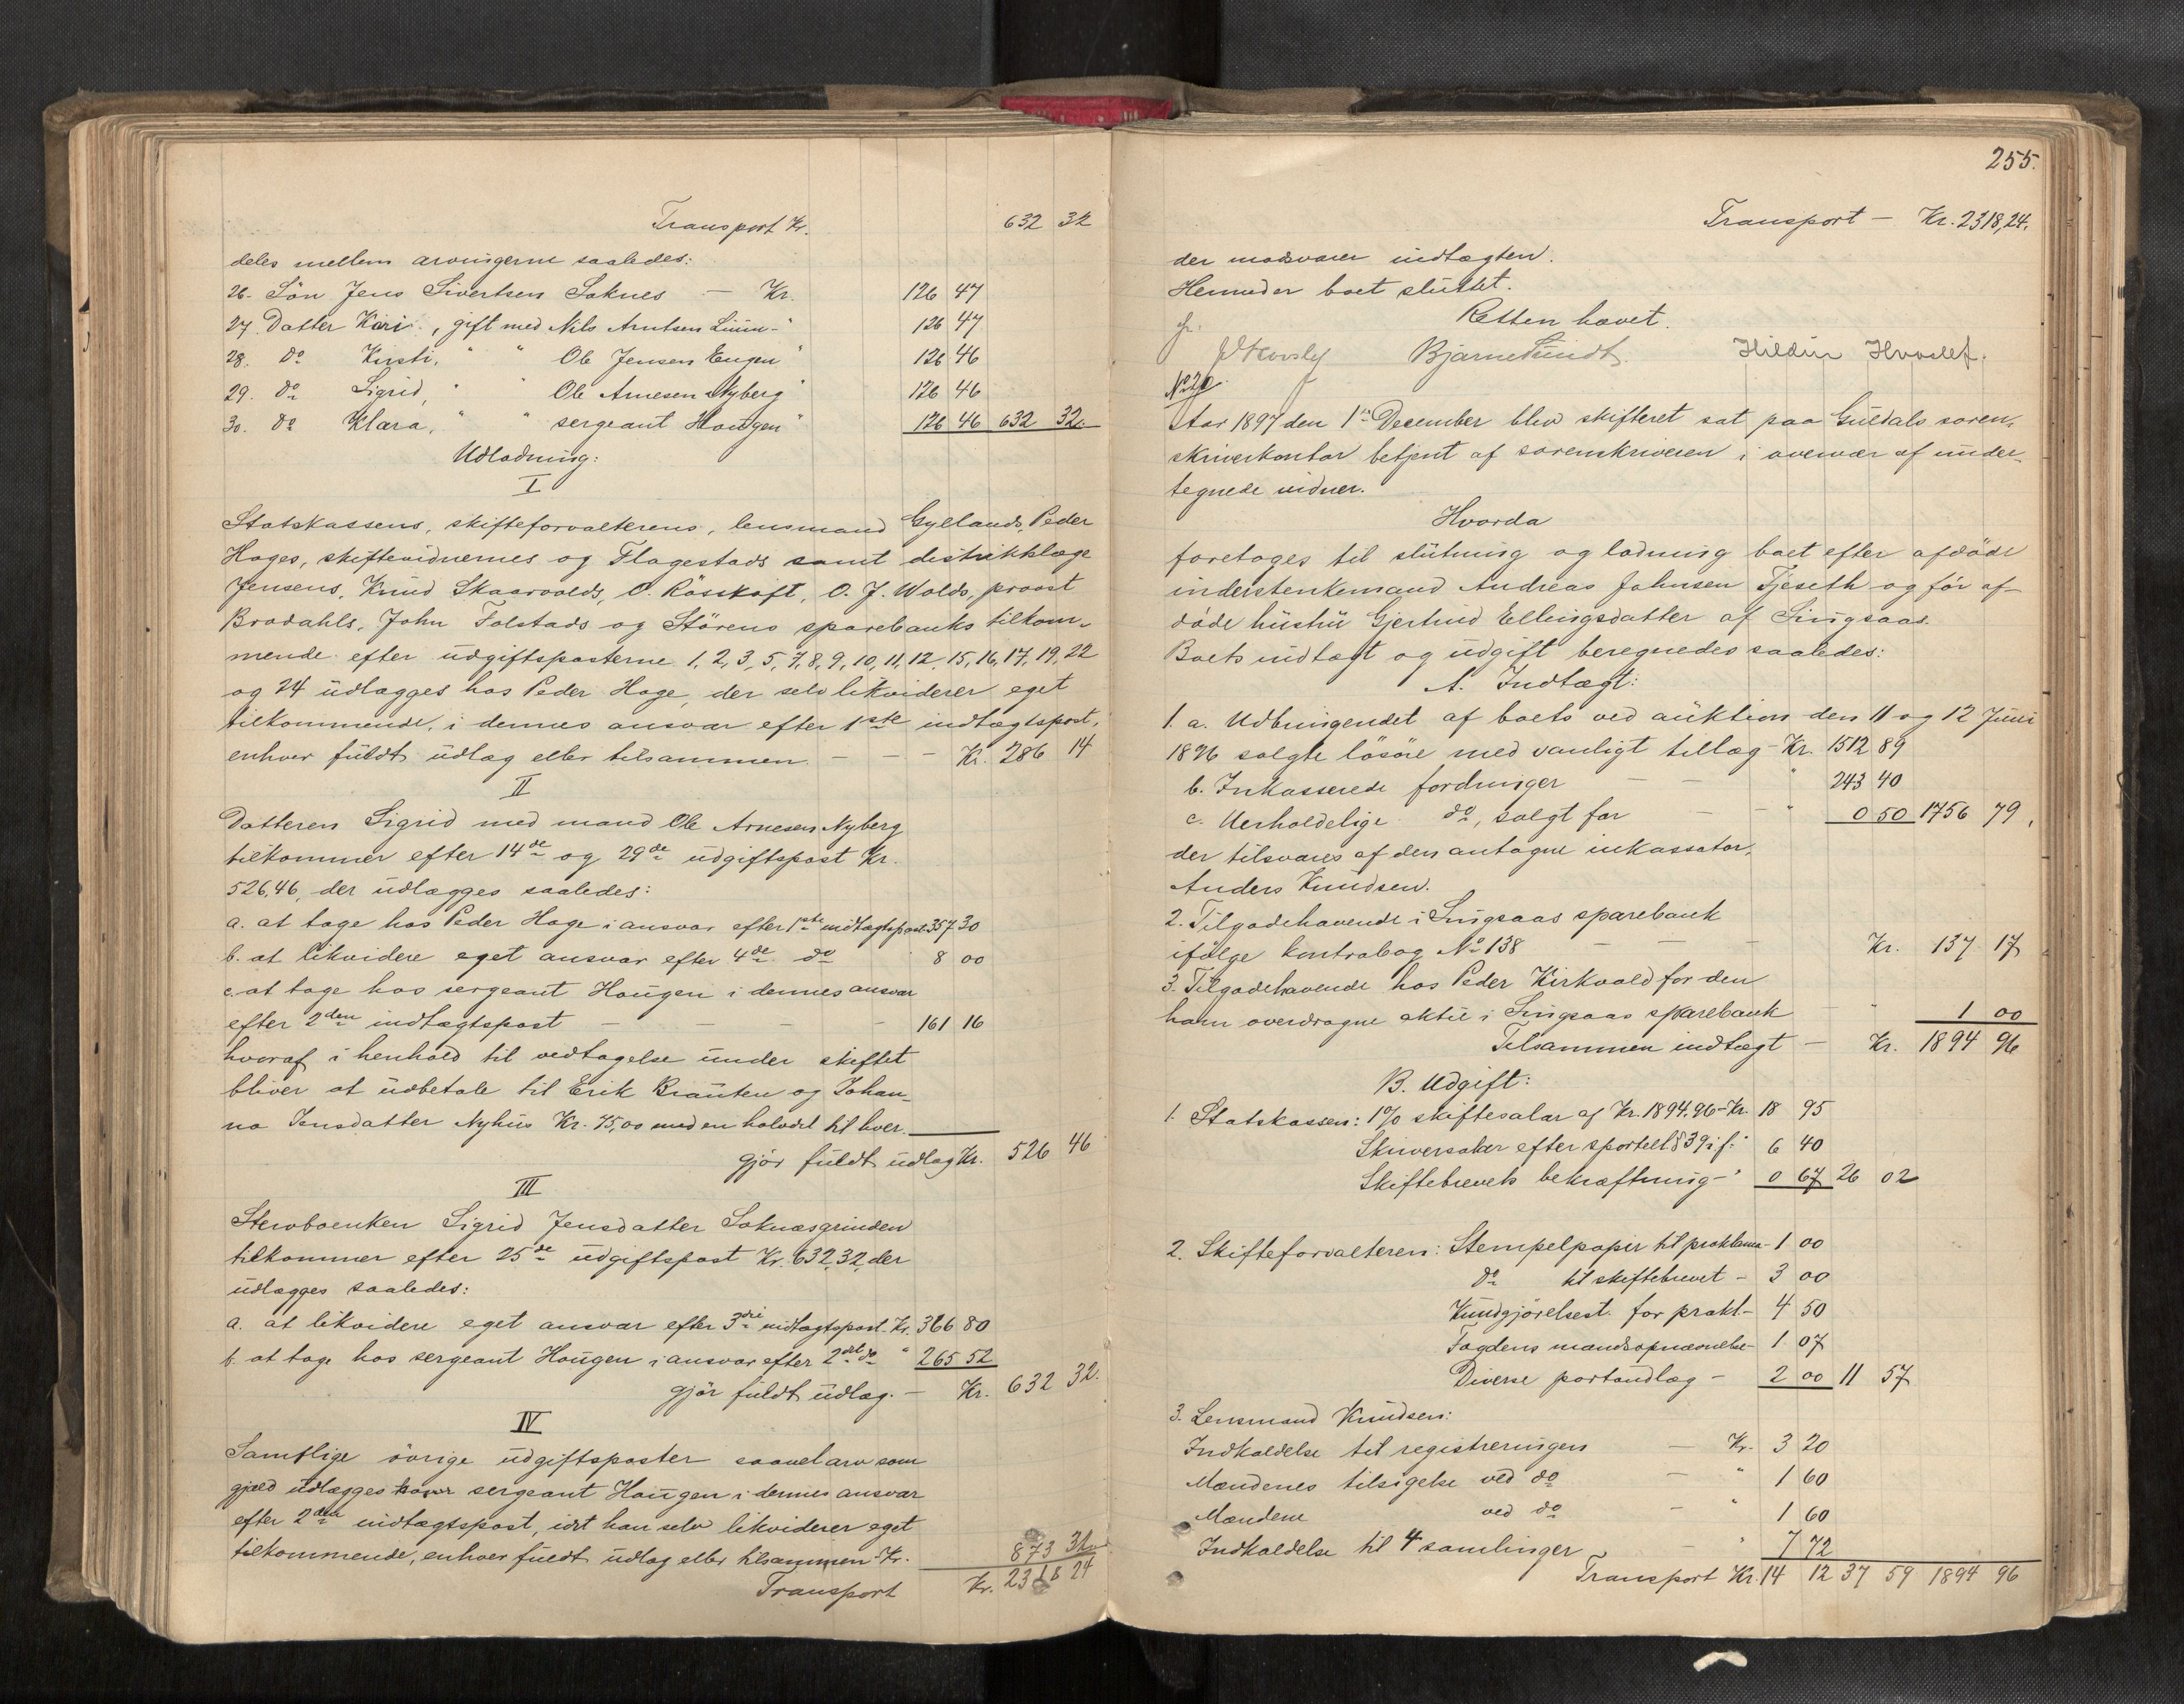 Transport Kr. 632 32
deles mellem arvingerne saaledes:
26. Sön Jens Sivertsen Soknes — Kr. 126 47
27. Datter Kari, gift med Nils Arntsen Liun - " 126 47
28. do Kirsti, " " Ole Jensen Engen " 126 46
29. do Sigrid, " " Ole Arnesen Nyberg " 126 46
30. do Klara, " " sergeant Hougen " 126 46 632 32.
Udlodning:
I
Statskassens, skifteforvalterens, lensmand Gyllands, Peder
Hages, skiftevidnernes og Flagestads samt distriktslæge
Jensens, Knud Skaarvolds, O. Rösskaft, O. J. Wolds, provst
Brodahls, John Folstads og Störens sparebanks tilkom-
mende efter udgiftsposterne 1, 2, 3, 5, 7, 8, 9, 10, 11, 12, 15, 16, 17, 19, 22
og 24 udlægges hos Peder Hage, der selv likviderer eget
tilkommende, i dennes ansvar efter 1ste indtægtspost,
enhver fuldt udlæg eller tilsammen — — — Kr. 286 14
II
Datteren Sigrid med mand Ole Arnesen Nyberg
tilkommer efter 14de og 29de udgiftspost Kr.
526,46, der udlægges saaledes:
a. at tage hos Peder Hage i ansvar efter 1ste indtægtspost 357 30
b. at likvidere eget ansvar efter 4de do 8 00
c. at tage hos sergeant Hougen i dennes ansvar
efter 2den indtægtspost — — — — 161 16
hvoraf i henhold til vedtagelse under skiftet
bliver at udbetale til Erik Brauten og Johan-
na Jensdatter Nyhus Kr. 75,00 med en halvdel til hver.
gjör fuldt udlæg Kr. 526 46
III
Stervboenken Sigrid Jensdatter Soknæsgrinden
tilkommer efter 25de udgiftspost Kr. 632,32, der
udlægges saaledes:
a. at likvidere eget ansvar efter 3die indtægtspost - Kr. 366 80
b. at tage hos sergeant Hougen i ansvar efter 2den do " 265 52
gjör fuldt udlæg. — Kr. 632 32.
IV
Samtlige övrige udgiftsposter saavel arv som
gjæld udlægges hos sergeant Hougen i dennes ansvar
efter 2den indtægtspost, idet han selv likviderer eget
tilkommende, enhver fuldt udlæg eller tilsammen - Kr. 873 32
Transport Kr. 2318 24
255.
Transport — Kr. 2318,24.
der modsvarer indtægten.
Hermed er boet sluttet.
Retten hævet.
Bjarne Sundt. Hildur Hvoslef.
No 20.
Aar 1897 den 1ste December blev skifteret sat paa Guldals soren-
skriverkontor betjent af sorenskriveren i overvær af under-
tegnede vidner.
Hvorda
foretoges til slutning og lodning boet efter afdöde
inderstenkemand Andreas Johnsen Tjeseth og för af-
döde hustru Gjertrud Ellingsdatter af Singsaas.
Boets indtægt og udgift beregnedes saaledes:
A. Indtægt:
1. a. Udbringendet af boets ved auktion den 11 og 12 Juni
1896 solgte lösöre med vanligt tillæg - Kr. 1512 89
b. Inkasserede fordringer — — " 243 40
c. Uerholdelige do, solgt for — — " 0 50 1756 79,
der tilsvares af den antagne inkassator,
Anders Knudsen.
2. Tilgodehavende i Singsaas sparebank
ifölge kontrabog No 138 — — — Kr. 137 17
3. Tilgodehavende hos Peder Kirkvold for den
ham overdragne aktie i Singsaas sparebank — " 1 00
Tilsammen indtægt — Kr. 1894 96
B. Udgift:
1. Statskassen: 1% skiftesalær af Kr. 1894.96 - Kr. 18 95
Skriversalær efter sportell. § 39 i. f. " 6 40
Skiftebrevets bekræftning - " 0 67 26 02
2. Skifteforvalteren: Stempelpapir til proklama - 1 00
do til skiftebrevet - 3 00
Kundgjörelsest. for prokl. - 4 50
Fogdens mandsopnævnelse - 1 07
Diverse portoudlæg - 2 00 11 57
3. Lensmand Knudsen:
Indkaldelse til registreringen — Kr. 3 20
Mændenes tilsigelse ved do — " 1 60
Mændene ved do — " 1 60
Indkaldelse til 4 samlinger — " 7 72
Transport Kr. 14 12 37 59 1894 96